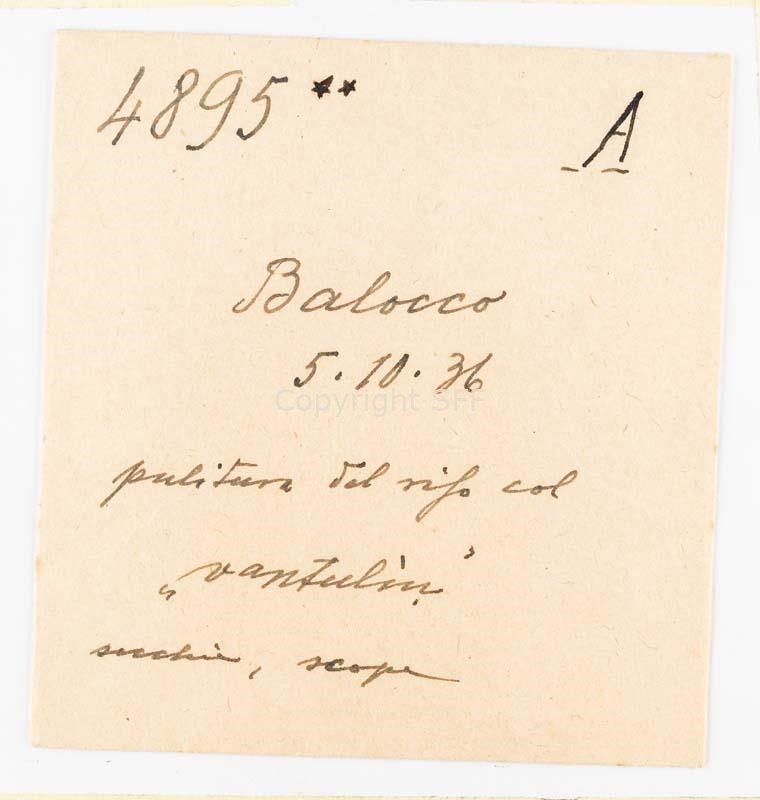 4895 **
A
Balocco
5. 10. 36
Copyright SFF
pulitura del riso col
„vantulin"
secchie, scope